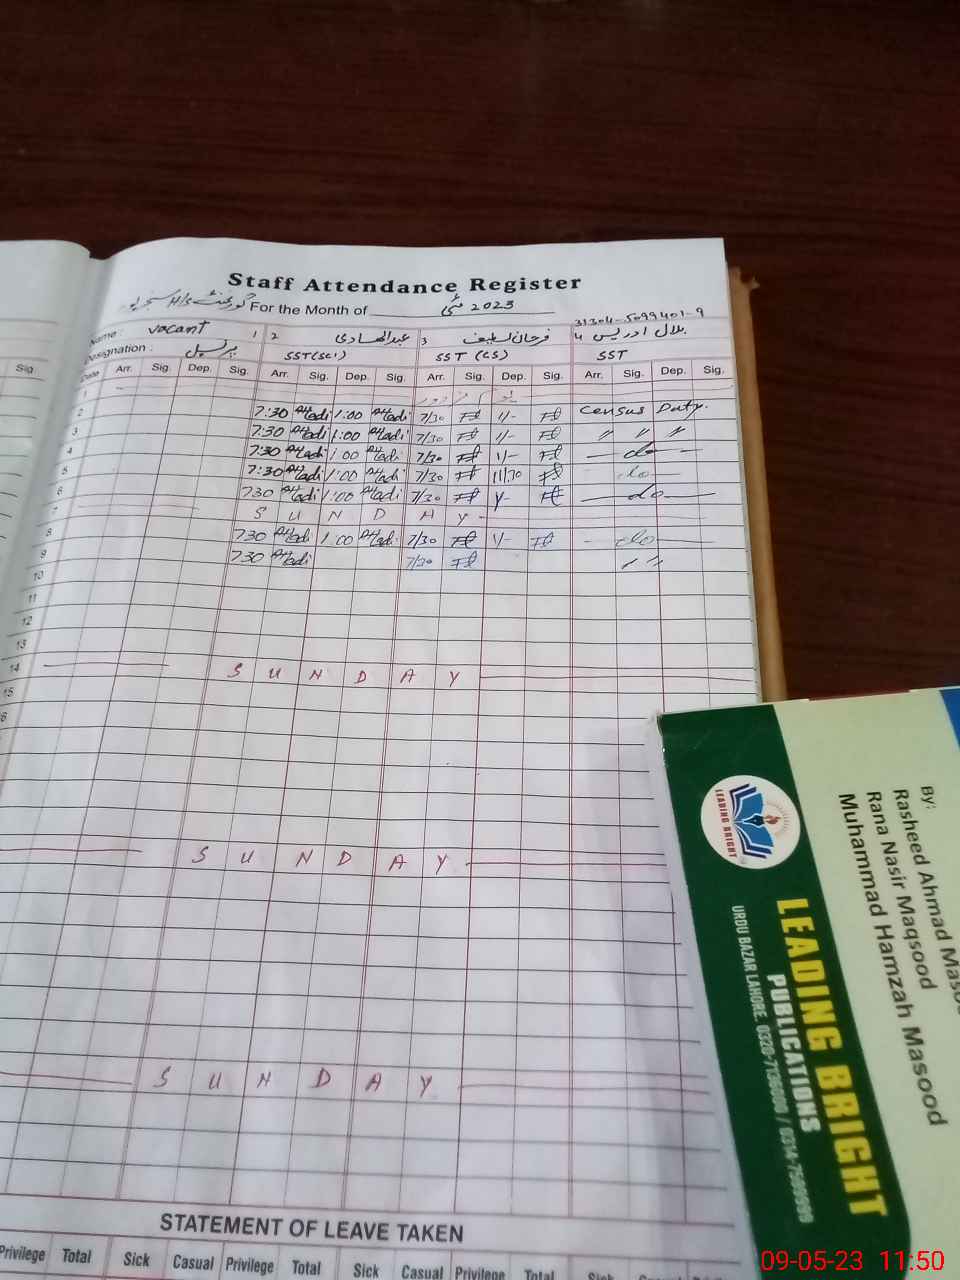 Staff Attendance Register
گورنمنٹ H/S سنجرپور For the Month of مئی 2023
31304-5099401-9
Name : Vacant 1 2 عبدالھادی 3 فرحان لطیف 4 بلال ادریس
Designation : پرنسپل SST (SCI) SST (CS) SST
Sig. Date Arr. Sig. Dep. Sig. Arr. Sig. Dep. Sig. Arr. Sig. Dep. Sig. Arr. Sig. Dep. Sig.
1 یوم مزدور
2 7:30 Hadi 1:00 Hadi 7/30 1/- Census Duty.
3 7:30 Hadi 1:00 Hadi 7/30 1/- " " "
4 7:30 Hadi 1:00 Hadi 7/30 1/- — do —
5 7:30 Hadi 1:00 Hadi 7/30 11/30 do
6 730 Hadi 1:00 Hadi 7/30 — do —
7 S U N D A Y
8 730 Hadi 1:00 Hadi 7/30 1/- — do —
9 730 Hadi 7/30 " "
10
11
12
13
14 S U N D A Y
15
S U N D A Y
S U N D A Y
STATEMENT OF LEAVE TAKEN
Privilege Total Sick Casual Privilege Total Sick Casual Privilege Total Sick
By:
Rasheed Ahmad
Rana Nasir Maqsood
Muhammad Hamzah Masood
LEADING BRIGHT
LEADING BRIGHT
PUBLICATIONS
URDU BAZAR LAHORE.
09-05-23 11:50